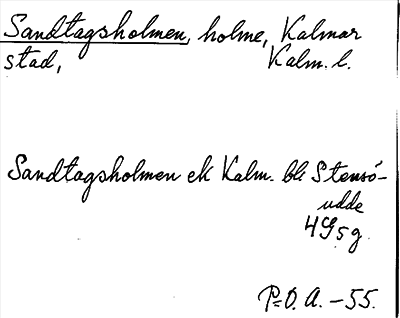 Sandtagsholmen, holme, Kalmar
stad, Kalm. l.
Sandtagsholmen ek Kalm. bl. Stensö-
udde
4G5g.
P-O. A. -55.